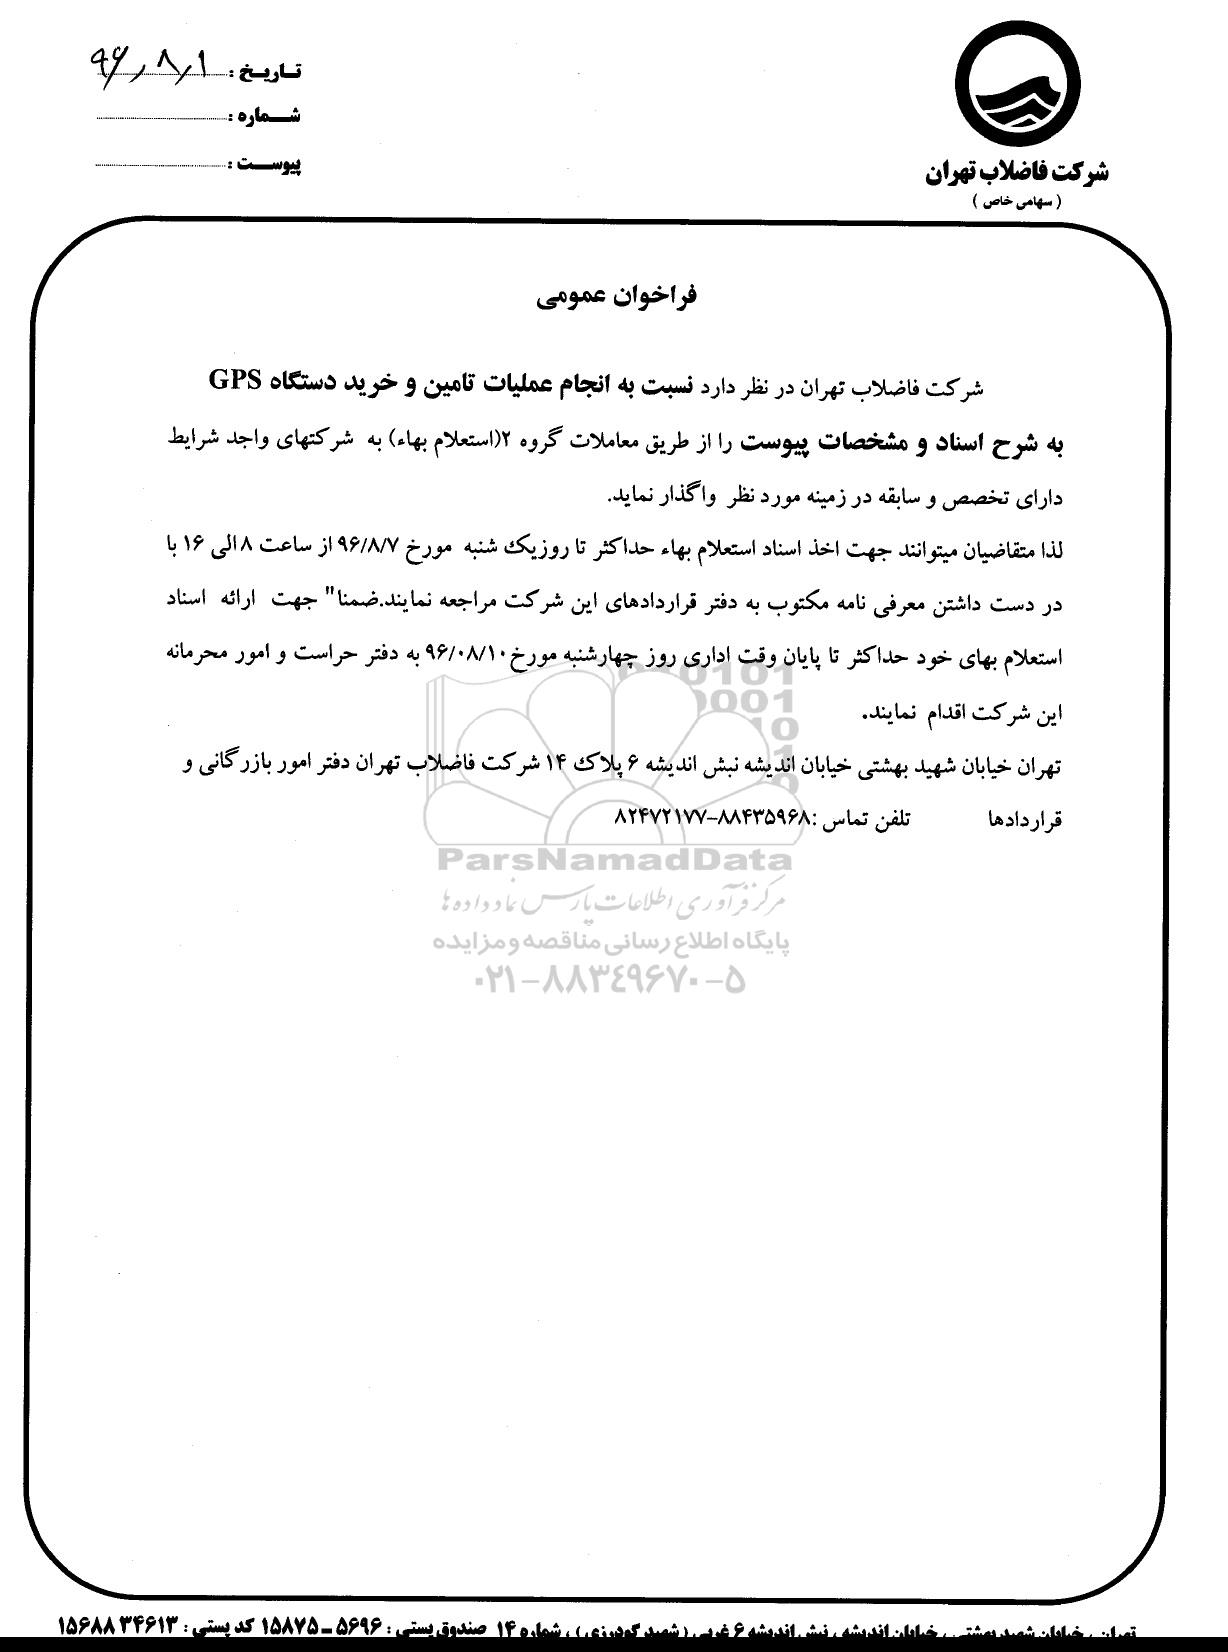 تاریخ : ۹۶٫۸٫۱
شماره :
پیوست :
شرکت فاضلاب تهران
( سهامی خاص )
فراخوان عمومی
شرکت فاضلاب تهران در نظر دارد نسبت به انجام عملیات تامین و خرید دستگاه GPS
به شرح اسناد و مشخصات پیوست را از طریق معاملات گروه ۲(استعلام بهاء) به شرکتهای واجد شرایط
دارای تخصص و سابقه در زمینه مورد نظر واگذار نماید.
لذا متقاضیان میتوانند جهت اخذ اسناد استعلام بهاء حداکثر تا روزیک شنبه مورخ ۹۶/۸/۷ از ساعت ۸ الی ۱۶ با
در دست داشتن معرفی نامه مکتوب به دفتر قراردادهای این شرکت مراجعه نمایند.ضمنا" جهت ارائه اسناد
استعلام بهای خود حداکثر تا پایان وقت اداری روز چهارشنبه مورخ ۹۶/۰۸/۱۰ به دفتر حراست و امور محرمانه
این شرکت اقدام نمایند.
تهران خیابان شهید بهشتی خیابان اندیشه نبش اندیشه ۶ پلاک ۱۴ شرکت فاضلاب تهران دفتر امور بازرگانی و
قراردادها تلفن تماس :۸۸۴۳۵۹۶۸-۸۲۴۷۲۱۷۷
ParsNamadData
مرکز فرآوری اطلاعات پارس نماد داده ها
پایگاه اطلاع رسانی مناقصه و مزایده
۰۲۱-۸۸۳۴۹۶۷۰-۵
تهران ، خیابان شهید بهشتی ، خیابان اندیشه ، نبش اندیشه ۶ غربی ( شهید گودرزی ) ، شماره ۱۴ صندوق پستی : ۵۶۹۶ ـ ۱۵۸۷۵ کد پستی : ۱۵۶۸۸۳۴۶۱۳